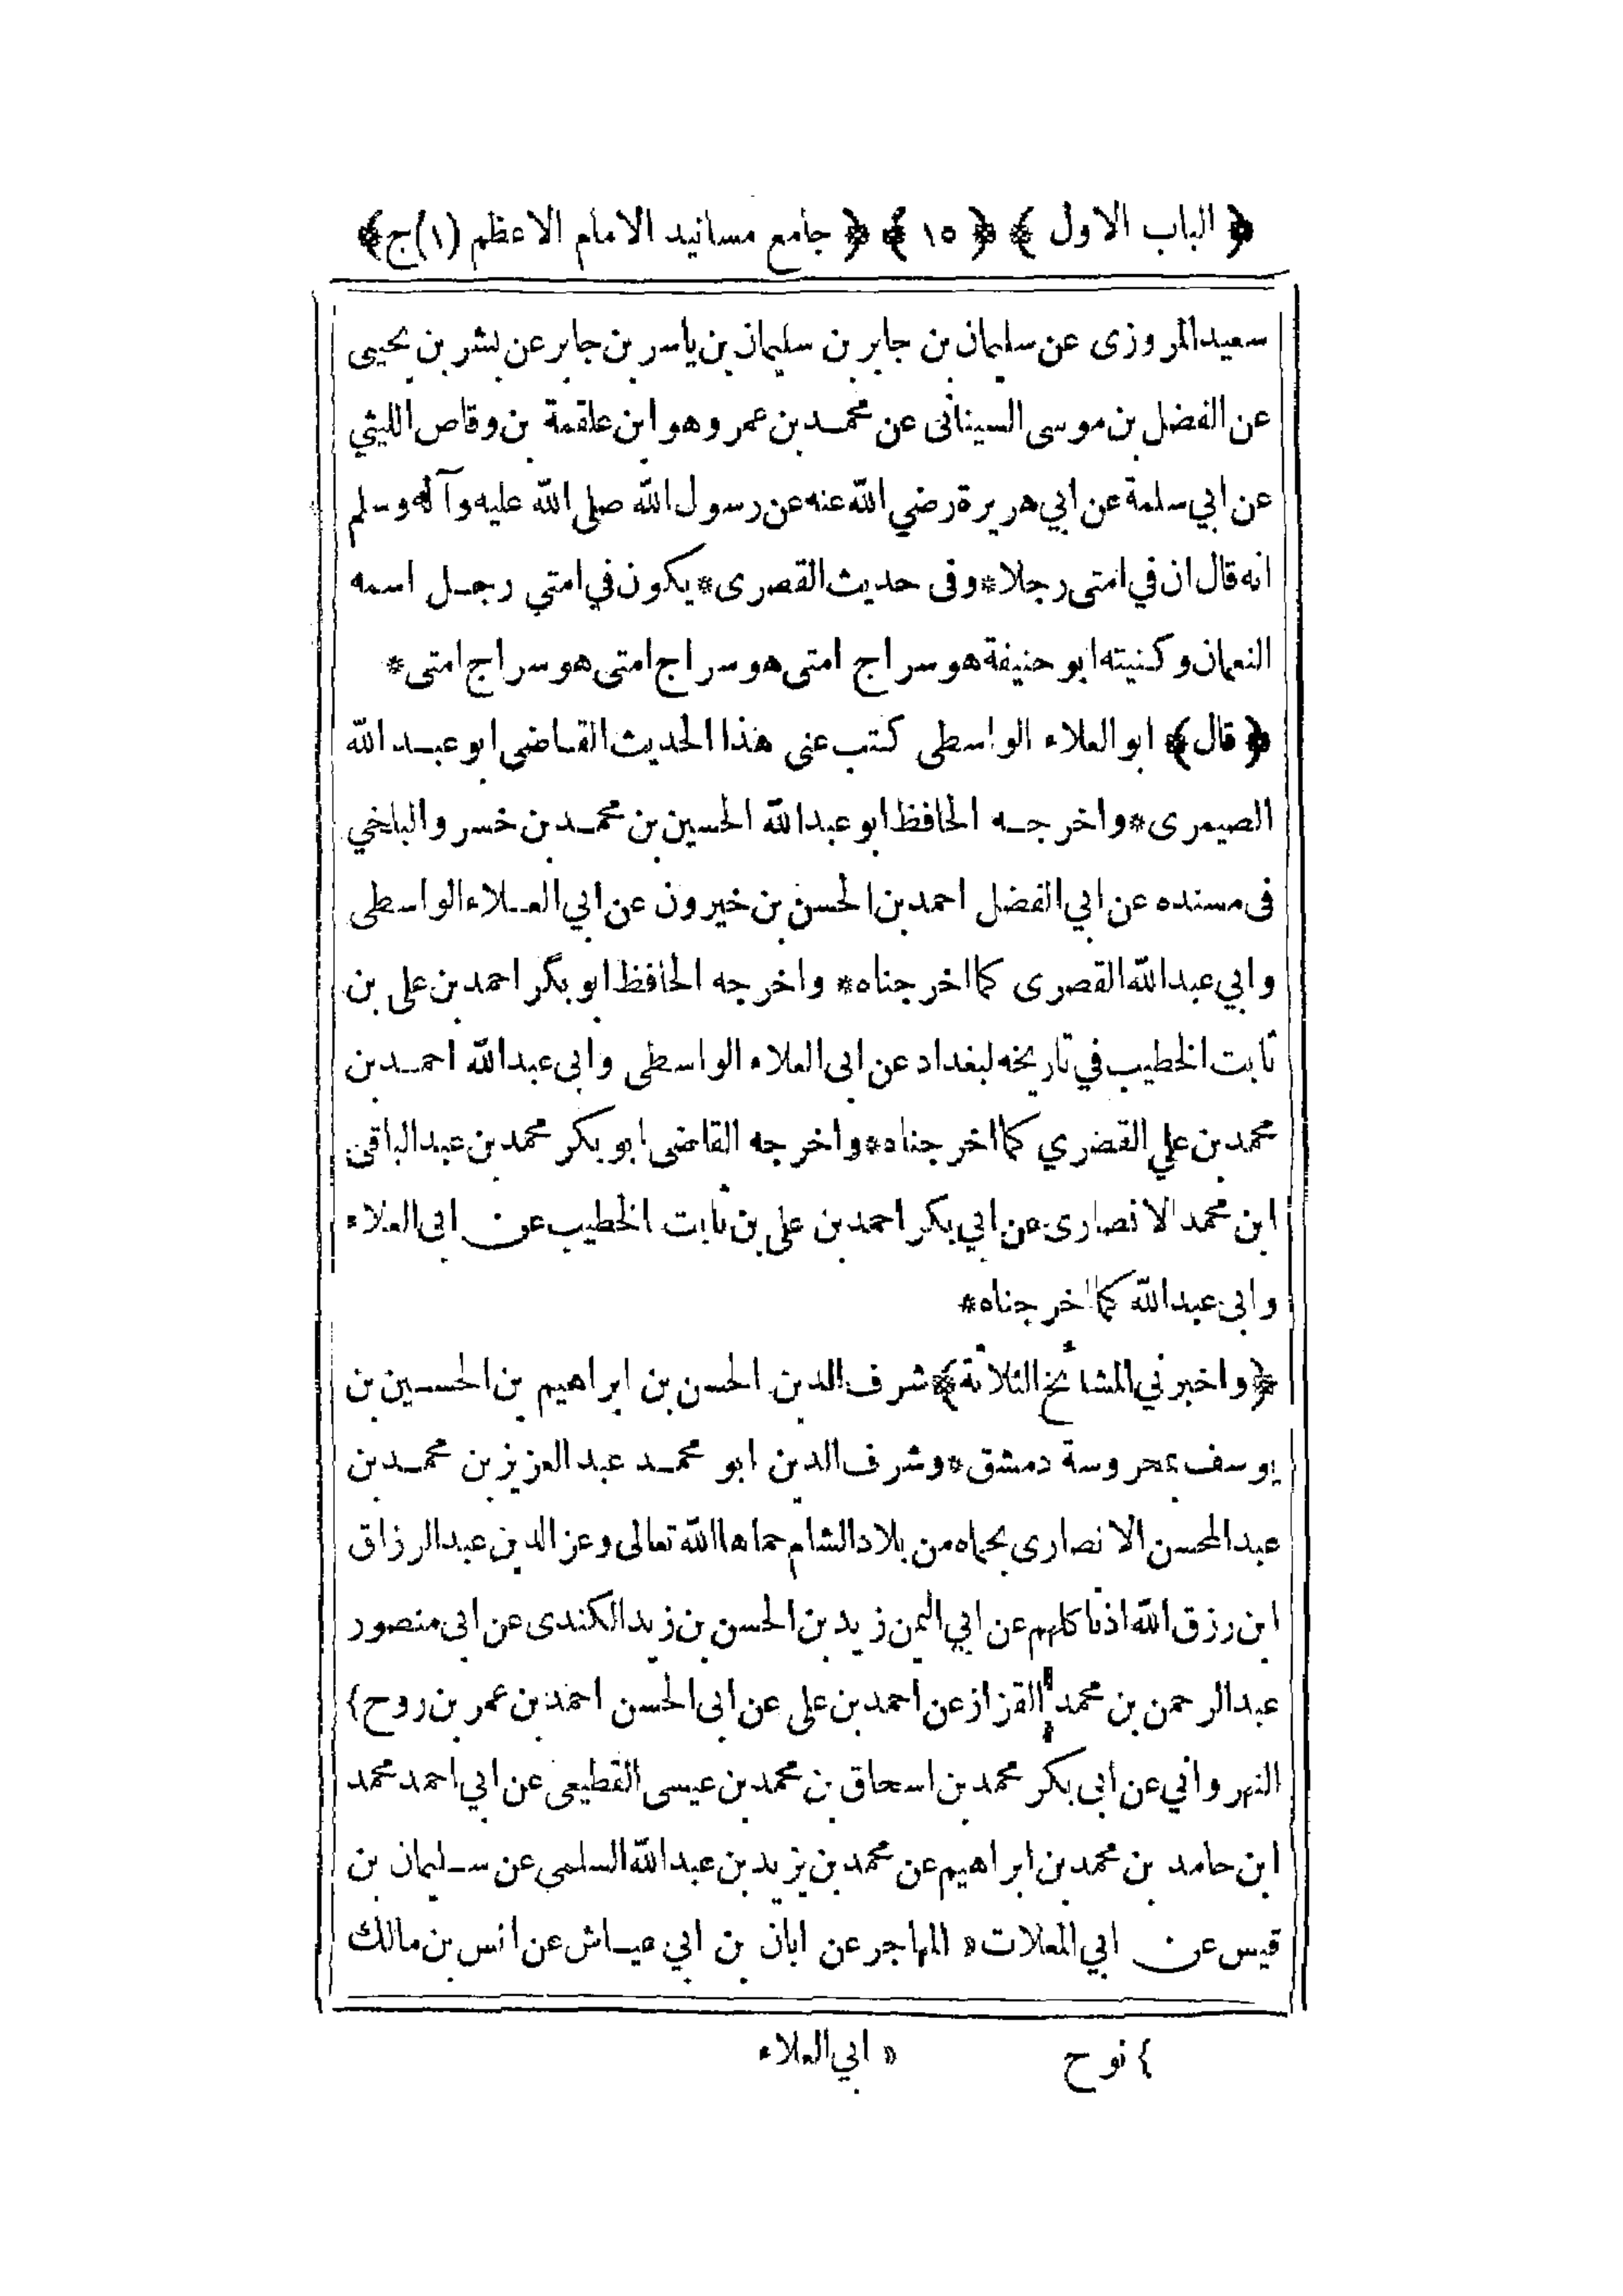 ﴿ الباب الاول ﴾ ﴿ ١٥ ﴾ ﴿ جامع مسانيد الامام الاعظم (١)ج﴾
سعيد المروزى عن سليمان بن جابر بن سليمان بن ياسر بن جابر عن بشر بن يحيى
عن الفضل بن موسى السينانى عن محمد بن عمر وهو ابن علقمة بن وقاص الليثي
عن ابي سلمة عن ابي هريرة رضي الله عنه عن رسول الله صلى الله عليه وآله وسلم
انه قال ان في امتى رجلا*وفى حديث القصرى*يكون في امتي رجل اسمه
النعمان وكنيته ابو حنيفة هو سراج امتى هو سراج امتى هو سراج امتى*
﴿ قال﴾ ابو العلاء الواسطى كتب عنى هذا الحديث القاضى ابو عبد الله
الصيمرى*واخرجه الحافظ ابو عبد الله الحسين بن محمد بن خسرو البلخي
فى مسنده عن ابي الفضل احمد بن الحسن بن خيرون عن ابي العلاء الواسطى
وابي عبد الله القصرى كما اخرجناه* واخرجه الحافظ ابو بكر احمد بن على بن
ثابت الخطيب في تاريخه لبغداد عن ابى العلاء الواسطى وابى عبد الله احمد بن
محمد بن علي القضري كما اخرجناه*واخرجه القاضى ابو بكر محمد بن عبد الباقى
ابن محمد الانصارى عن ابي بكر احمد بن على بن ثابت الخطيب عن ابى العلاء
وابى عبد الله كما اخرجناه*
﴿واخبرني المشائخ الثلاثة﴾شرف الدين الحسن بن ابراهيم بن الحسين بن
يوسف بمحروسة دمشق*وشرف الدين ابو محمد عبد العزيز بن محمد بن
عبد المحسن الانصارى بحماه من بلاد الشام حماها الله تعالى وعز الدين عبد الرزاق
ابن رزق الله اذنا كلهم عن ابي اليمن زيد بن الحسن بن زيد الكندى عن ابى منصور
عبد الرحمن بن محمد القزاز عن احمد بن على عن ابى الحسن احمد بن عمر بن روح}
النهرواني عن ابى بكر محمد بن اسحاق بن محمد بن عيسى القطيعى عن ابي احمد محمد
ابن حامد بن محمد بن ابراهيم عن محمد بن يزيد بن عبد الله السلمى عن سليمان بن
قيس عن ابي المعلات« المهاجر عن ابان بن ابي عياش عن انس بن مالك
} نوح « ابي العلاء